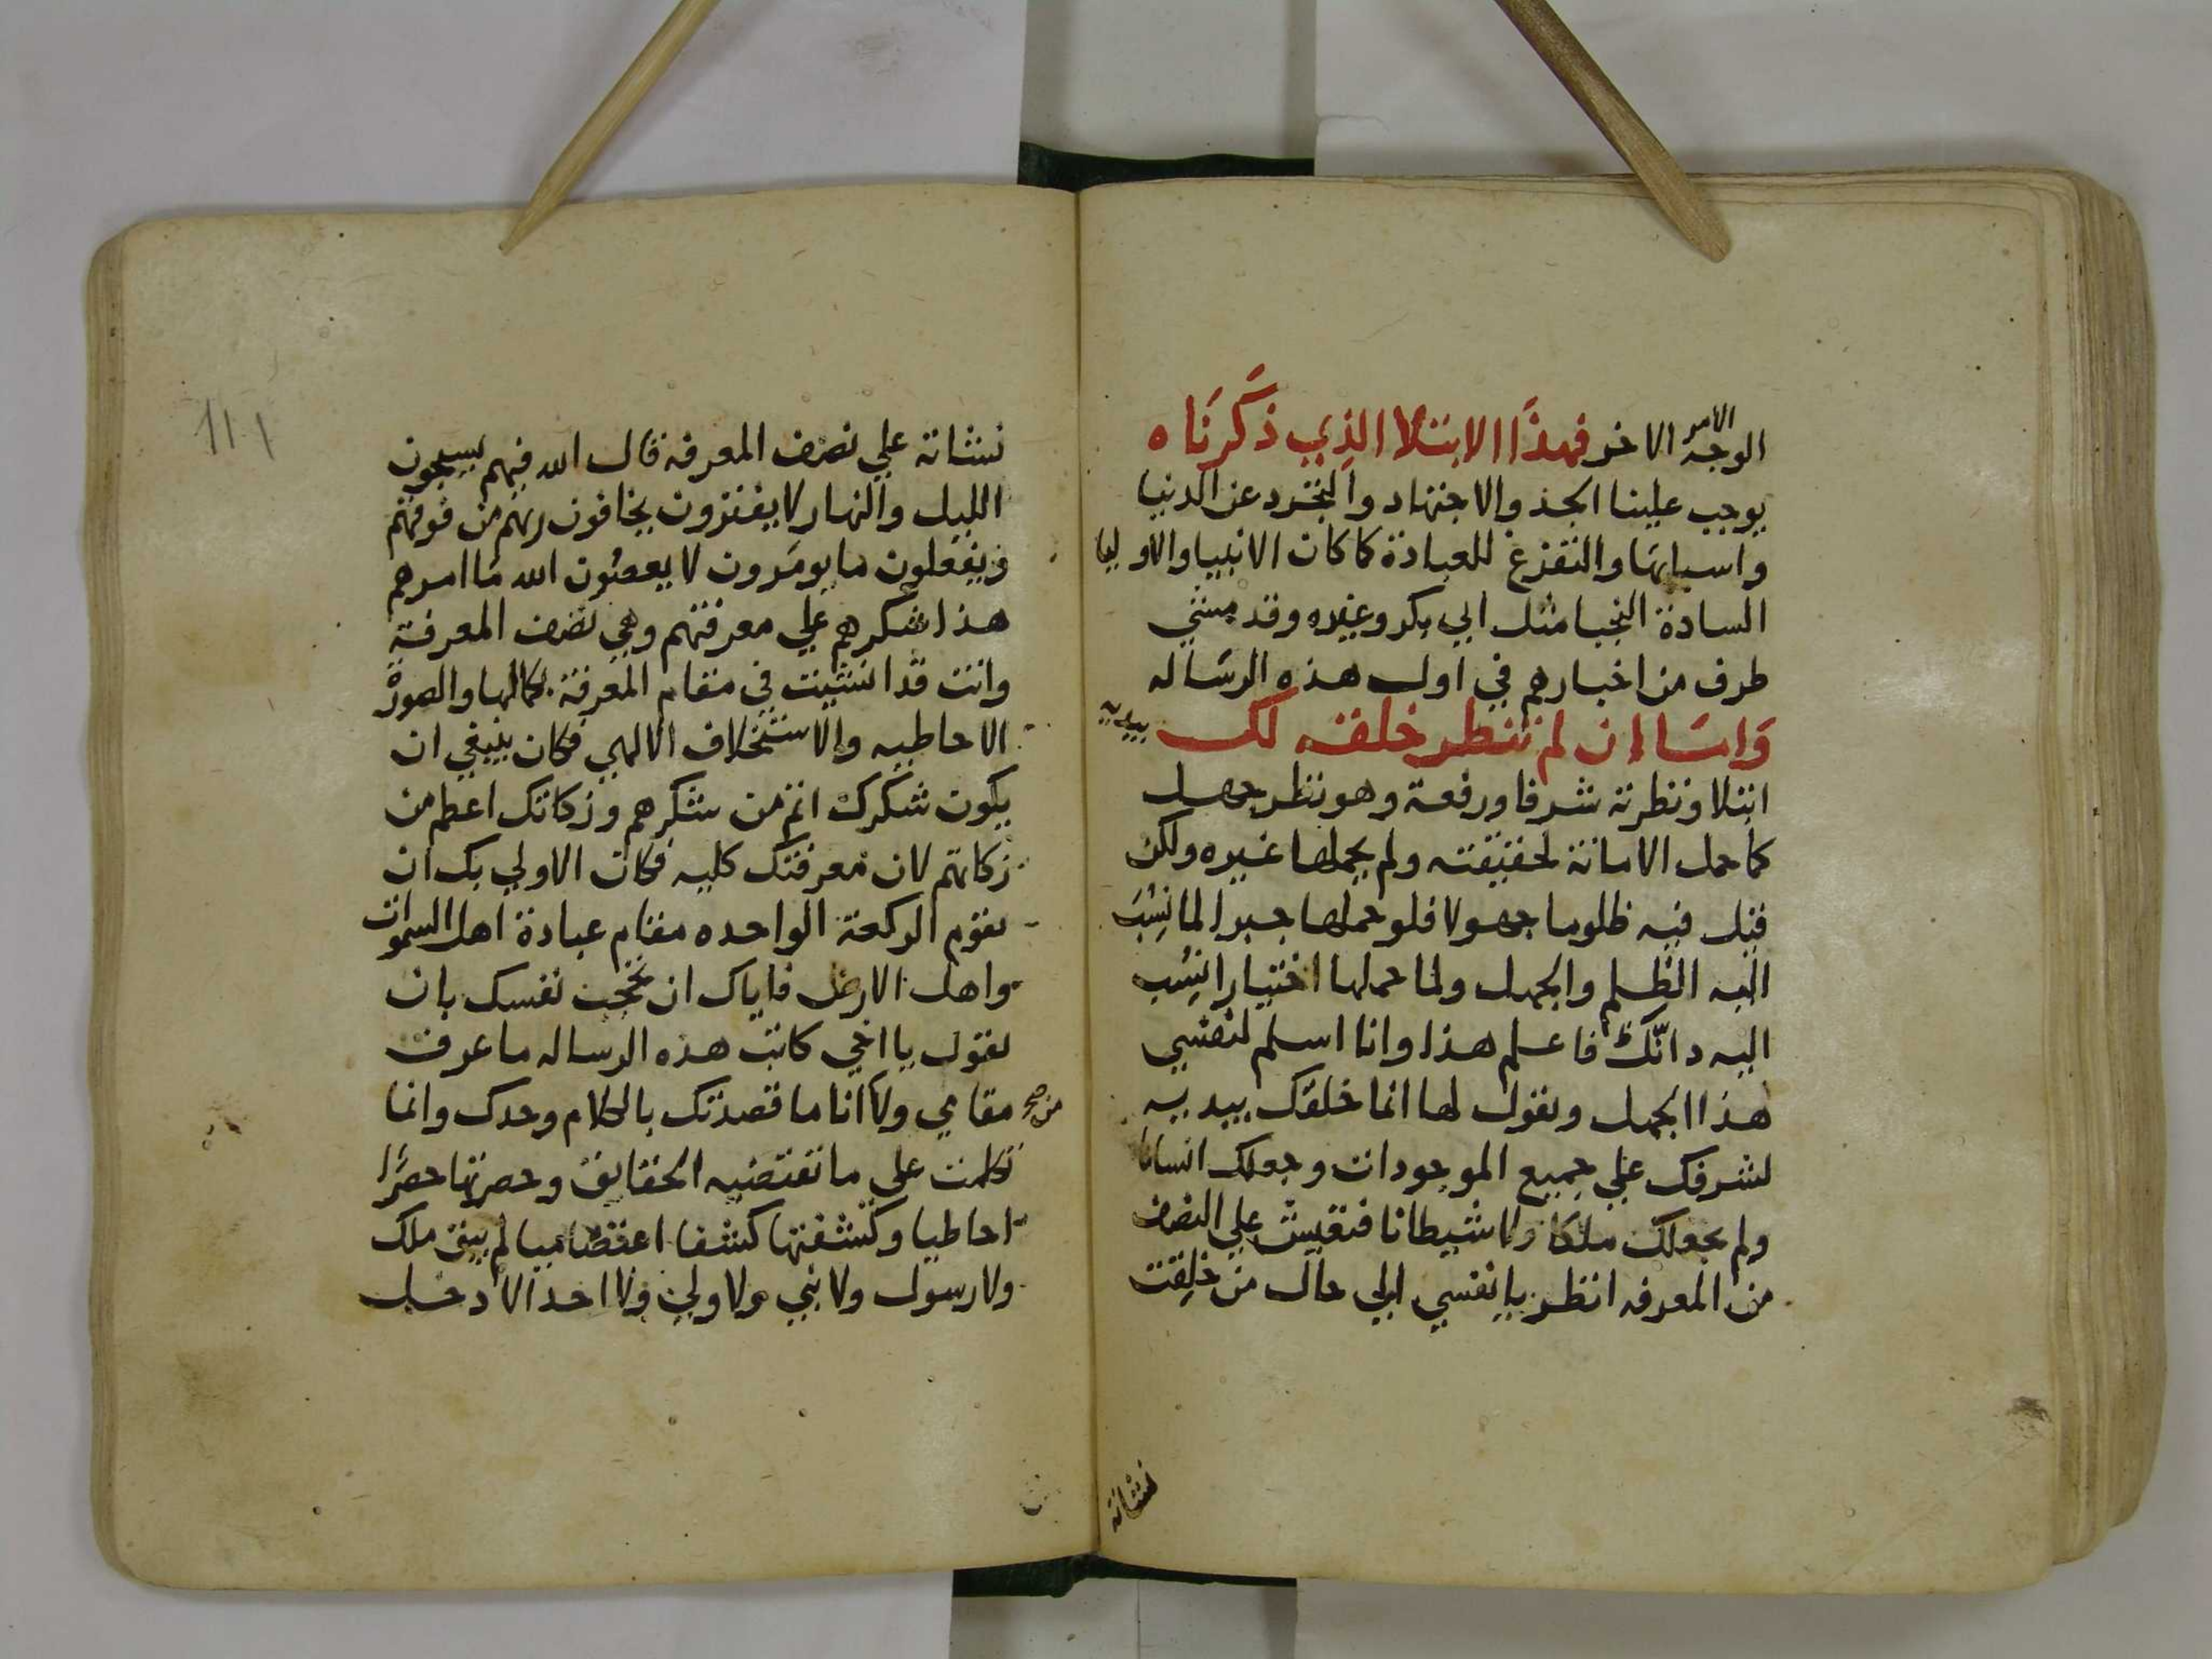 الوجه الامر الاخر فهذا الابتلا الذي ذكرناه
يوجب علينا الجد والاجتهاد والتجرد عن الدنيا
واسبابها والتفرغ للعبادة كما كان الانبيا والاوليا
السادة النجبا مثل ابي بكر وغيره وقد مشي
طرف من اخبارهم في اول هذه الرساله
وامَا ان لم تنظر خلقه لك بيديه
ابتلا ونظرته شرفا ورفعة وهو نظر جهل
كما حمل الامانة لحقيقته ولم يحملها غيره ولكن
قيل فيه ظلوما جهولا فلو حملها جبرا لما نُسِبَ
اليه الظلم والجهل ولما حملها اختيارا نُسِب
اليه دانّك فاعلم هذا وانا اسلم لنفسي
هذا الجهل ونقول لها انما خلقك بيديه
لشرفك علي جميع الموجودات وجعلك انسانا
ولم يجعلك ملكا ولا شيطانا فتقيش علي النصف
من المعرفه انظر يا نفسي الي حال من خلقت
نشاته
نشاته علي نصف المعرفة قال الله فيهم يسبحون
الليل والنهار لا يفترون يخافون ربهم من فوقهم
ويفعلون ما يومرون لا يعصون الله ما امرهم
هذا شكرهم علي معرفتهم وهي نصف المعرفة
وانت قد انشيت في مقام المعرفة بكمالها والصورة
الاحاطيه والاستخلاف الالهي فكان ينبغي ان
يكون شكرك اتم من شكرهم وزكاتك اعظم من
زكاتهم لان معرفتك كليه فكان الاولي بك ان
تقوم الركعة الواحده مقام عبادة اهل السموات
واهل الارض فاياك ان تحجب نفسك بان
تقول يا اخي كاتب هذه الرساله ما عرف
مقامي ولا انا ما قصدتك بالكلام وحدك وانما
من صح
تكلمت علي ما تقتضيه الحقايق وحصرتها حصرًا
احاطيا وكشفتها كشفا اعتصاميا لم يبق ملك
ولا رسول ولا نبي ولا ولي ولا احد الا دخل
١١١